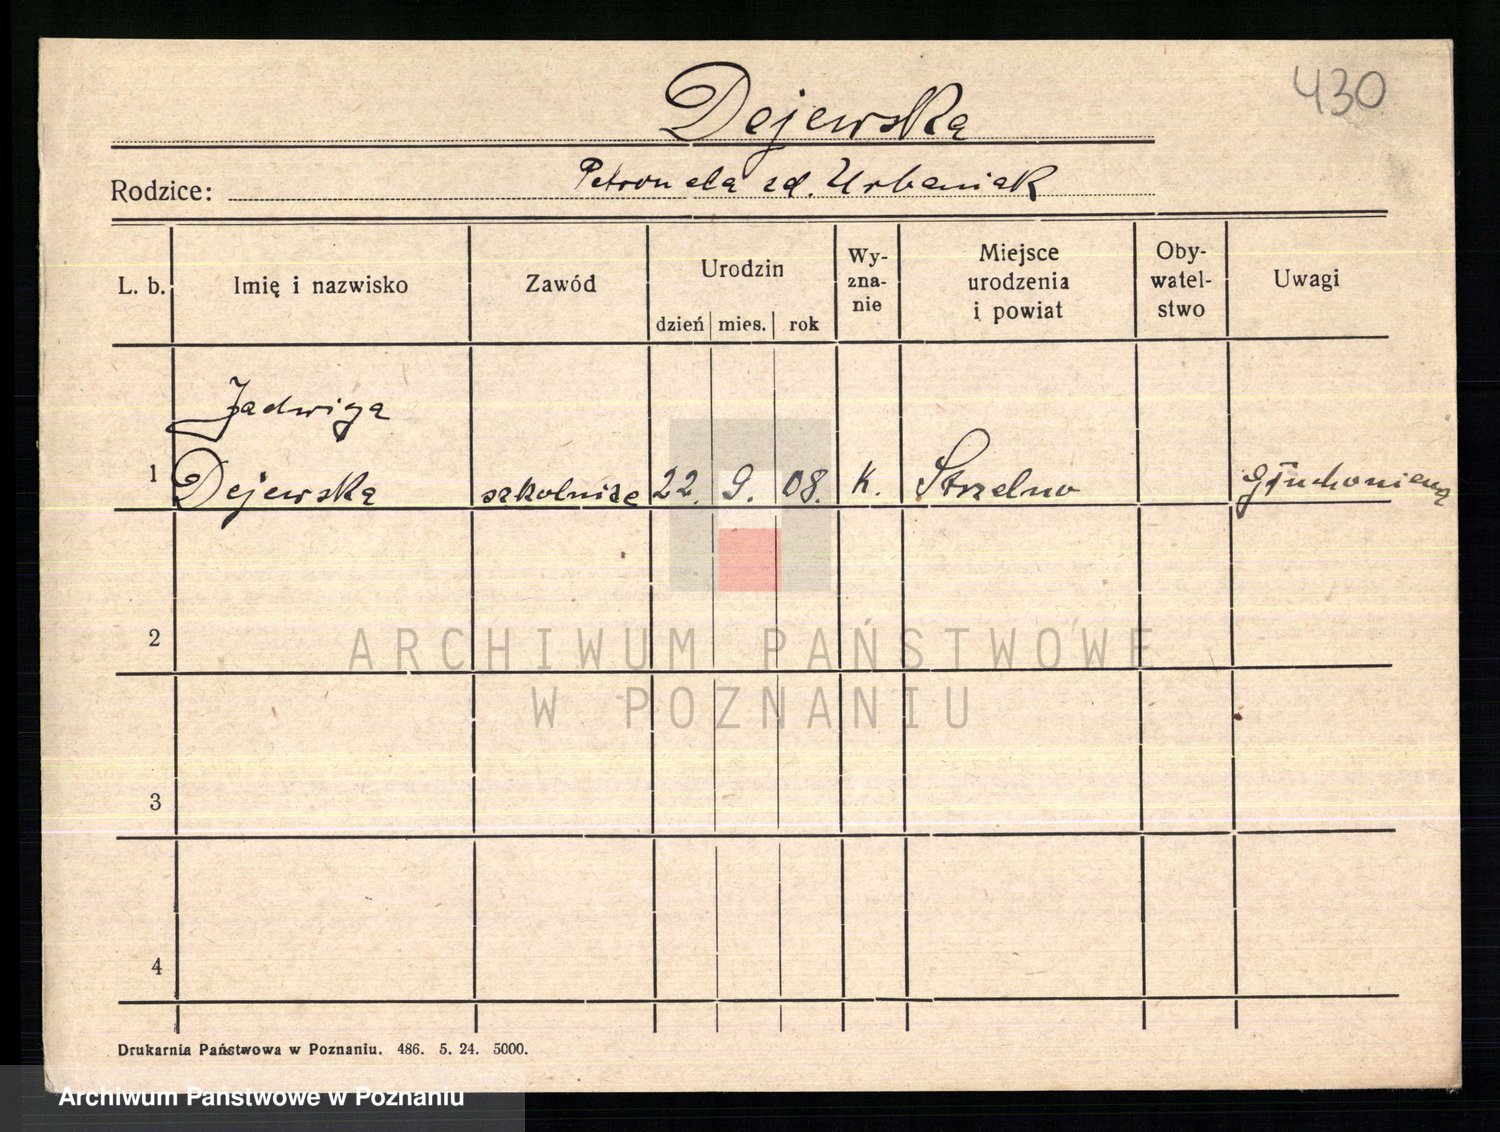 430
Dejewska
Rodzice: Petronela zd. Urbaniak
L. b. Imię i nazwisko Zawód Urodzin dzień mies. rok Wy- zna- nie Miejsce urodzenia i powiat Oby- watel- stwo Uwagi
Jadwiga
1 Dejewska 22. 9. 08. K. Strzelno głuchoniema
2
ARCHIWUM PAŃSTWOWE
W POZNANIU
3
4
Drukarnia Państwowa w Poznaniu. 486. 5. 24. 5000.
Archiwum Państwowe w Poznaniu